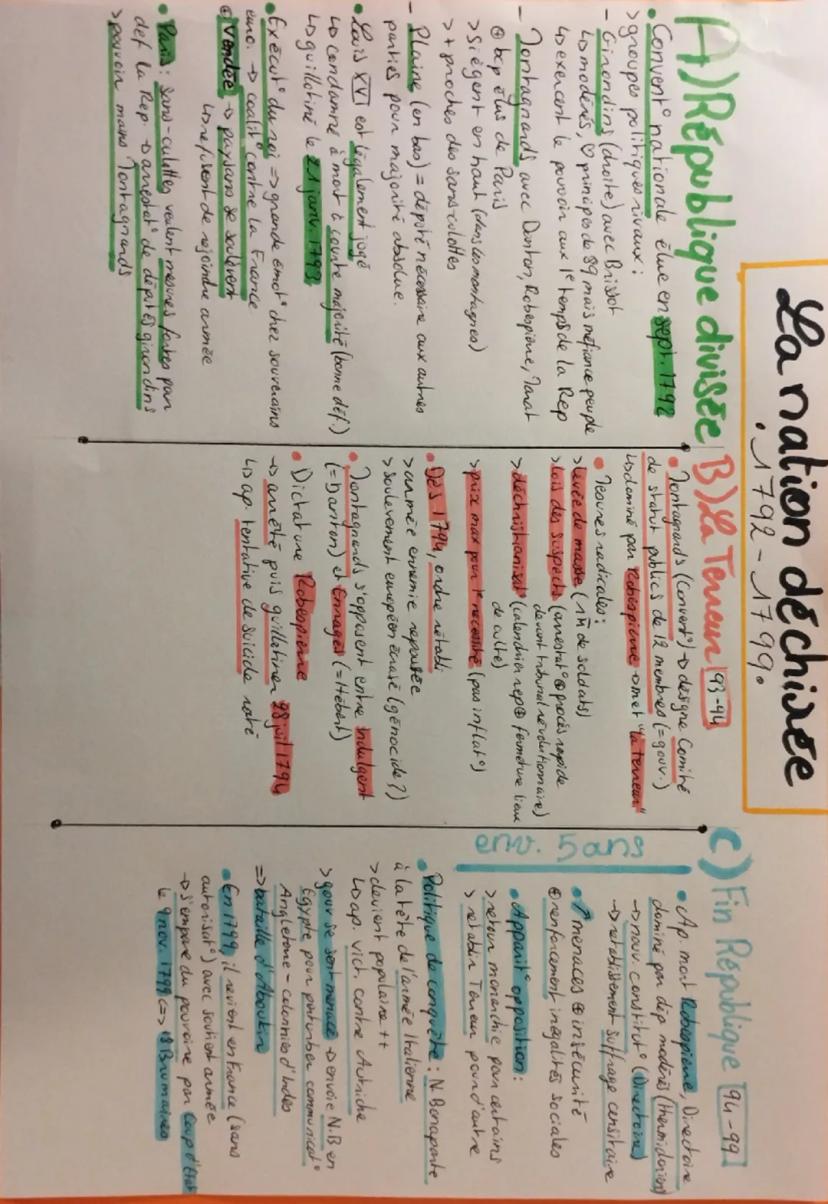 La nation déchirée
. 1792 - 1799.
A) République divisée
• Convent° nationale élue en sept. 1792
> groupes politiques rivaux :
- Girondins (droite) avec Brissot
↳ modérés, ♡ principes de 89 mais méfiance peuple
↳ exercent le pouvoir aux 1e temps de la Rep
- Montagnards avec Danton, Robespierre, Marat
⊕ bcp élus de Paris
> siègent en haut (dans les montagnes)
> + proches des sans-culottes
- Plaine (en bas) = député nécessaire aux autres
parties pour majorité absolue.
• Louis XVI est légalement jugé
↳ condamné à mort à courte majorité (bonne déf.)
↳ guillotiné le 21 janv. 1793
• Exécut° du roi => grande émot° chez souverains
euro. → coalit° contre la France
⊕ Vendée → paysans se soulèvent
↳ refusent de rejoindre armée
• Paris : sans-culottes veulent mesures fortes pour
déf la Rep. → arrestat° de députés girondins
> pouvoir mains Montagnards
B) La Terreur 93-94
• Montagnards (Convent°) → désigne Comité
de statut publics de 12 membres (= gouv.)
↳ dominé par Robespierre → met "la terreur"
• Mesures radicales :
> levée de masse (1M de soldats)
> lois des suspects (arrestat° ⊕ procès rapide
devant tribunal révolutionnaire)
> déchristianisat° (calendrier rep ⊕ fermeture lieu
de culte)
> prix max pour 1e nécessité (pas inflat°)
• Dès 1794, ordre rétabli
> armée ennemie repoussée
> soulevement européen écrasé (génocide ?)
• Montagnards s'opposent entre indulgent
(= Danton) et Enragés (= Hébert)
• Dictature Robespierre
→ arrêté puis guillotiner 28 juil 1794
↳ ap. tentative de suicide raté
C) Fin République 94-99
env. 5 ans
• Ap. mort Robespierre, Directoire
dominé par dép modérés (thermidoriens)
→ nouv. constitut° (Directoire)
→ retablissement suffrage censitaire
• ↗ menaces ⊕ insécurité
⊕ renforcement inégalités sociales
• Apparit° opposition :
> retour monarchie pour certains
> rétablir Terreur pour d'autre
• Politique de conquête : N. Bonaparte
à la tête de l'armée Italienne
> devient populaire ++
↳ ap. vict. contre Autriche
> gouv se sent menacé → envoie N.B en
Egypte pour perturber communicat°
Angleterre - colonnies d'Indes
=> bataille d'Aboukir
• En 1799, il revient en France (sans
autorisat°) avec soutient armée
→ s'empare du pouvoire par Coup d'Etat
le 9 nov. 1799 (=> 18 Brumaires